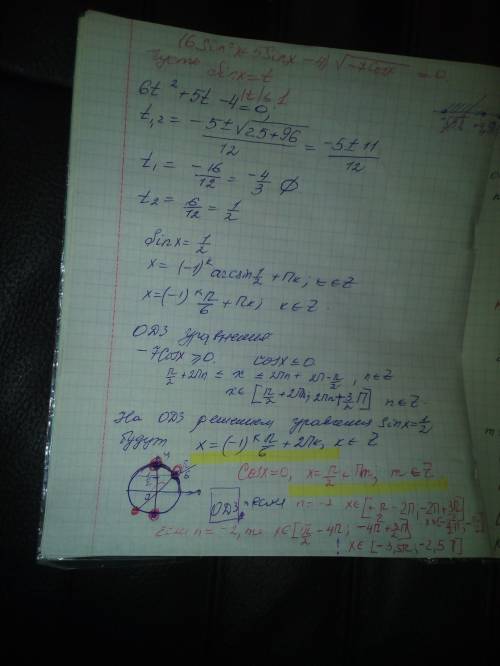 (6Sin²x+5Sinx-4)√-7cosx = 0
Пусть Sinx=t
|t|≤1
6t²+5t-4=0,
t₁,₂ = -5±√25+96 / 12 = -5±11 / 12
t₁ = -16/12 = -4/3 ∅
t₂ = 6/12 = 1/2
Sinx = 1/2
x = (-1)ᵏ arcsin 1/2 + Пк; к∈Z
x=(-1)ᵏ П/6 + Пк; к∈Z.
ОДЗ уравнения
-7Cosx ≥0. cosx≤0.
П/2+2Пn ≤ x ≤ 2Пn+ 2П-П/2, n∈Z
x∈[П/2+2Пn; 2Пn+3/2П] n∈Z.
На ОДЗ решением уравнения Sinx=1/2,
будут x=(-1)ᵏ П/6 + 2Пк, к∈Z
Cosx=0, x=П/2+Пm; m∈Z
ОДЗ. если n=-1 x∈[П/2-2П; -2П+3/2П]
Если n=-2, то x∈[П/2-4П; -4П+3/2П]
! x∈[-3,5П; -2,5П]